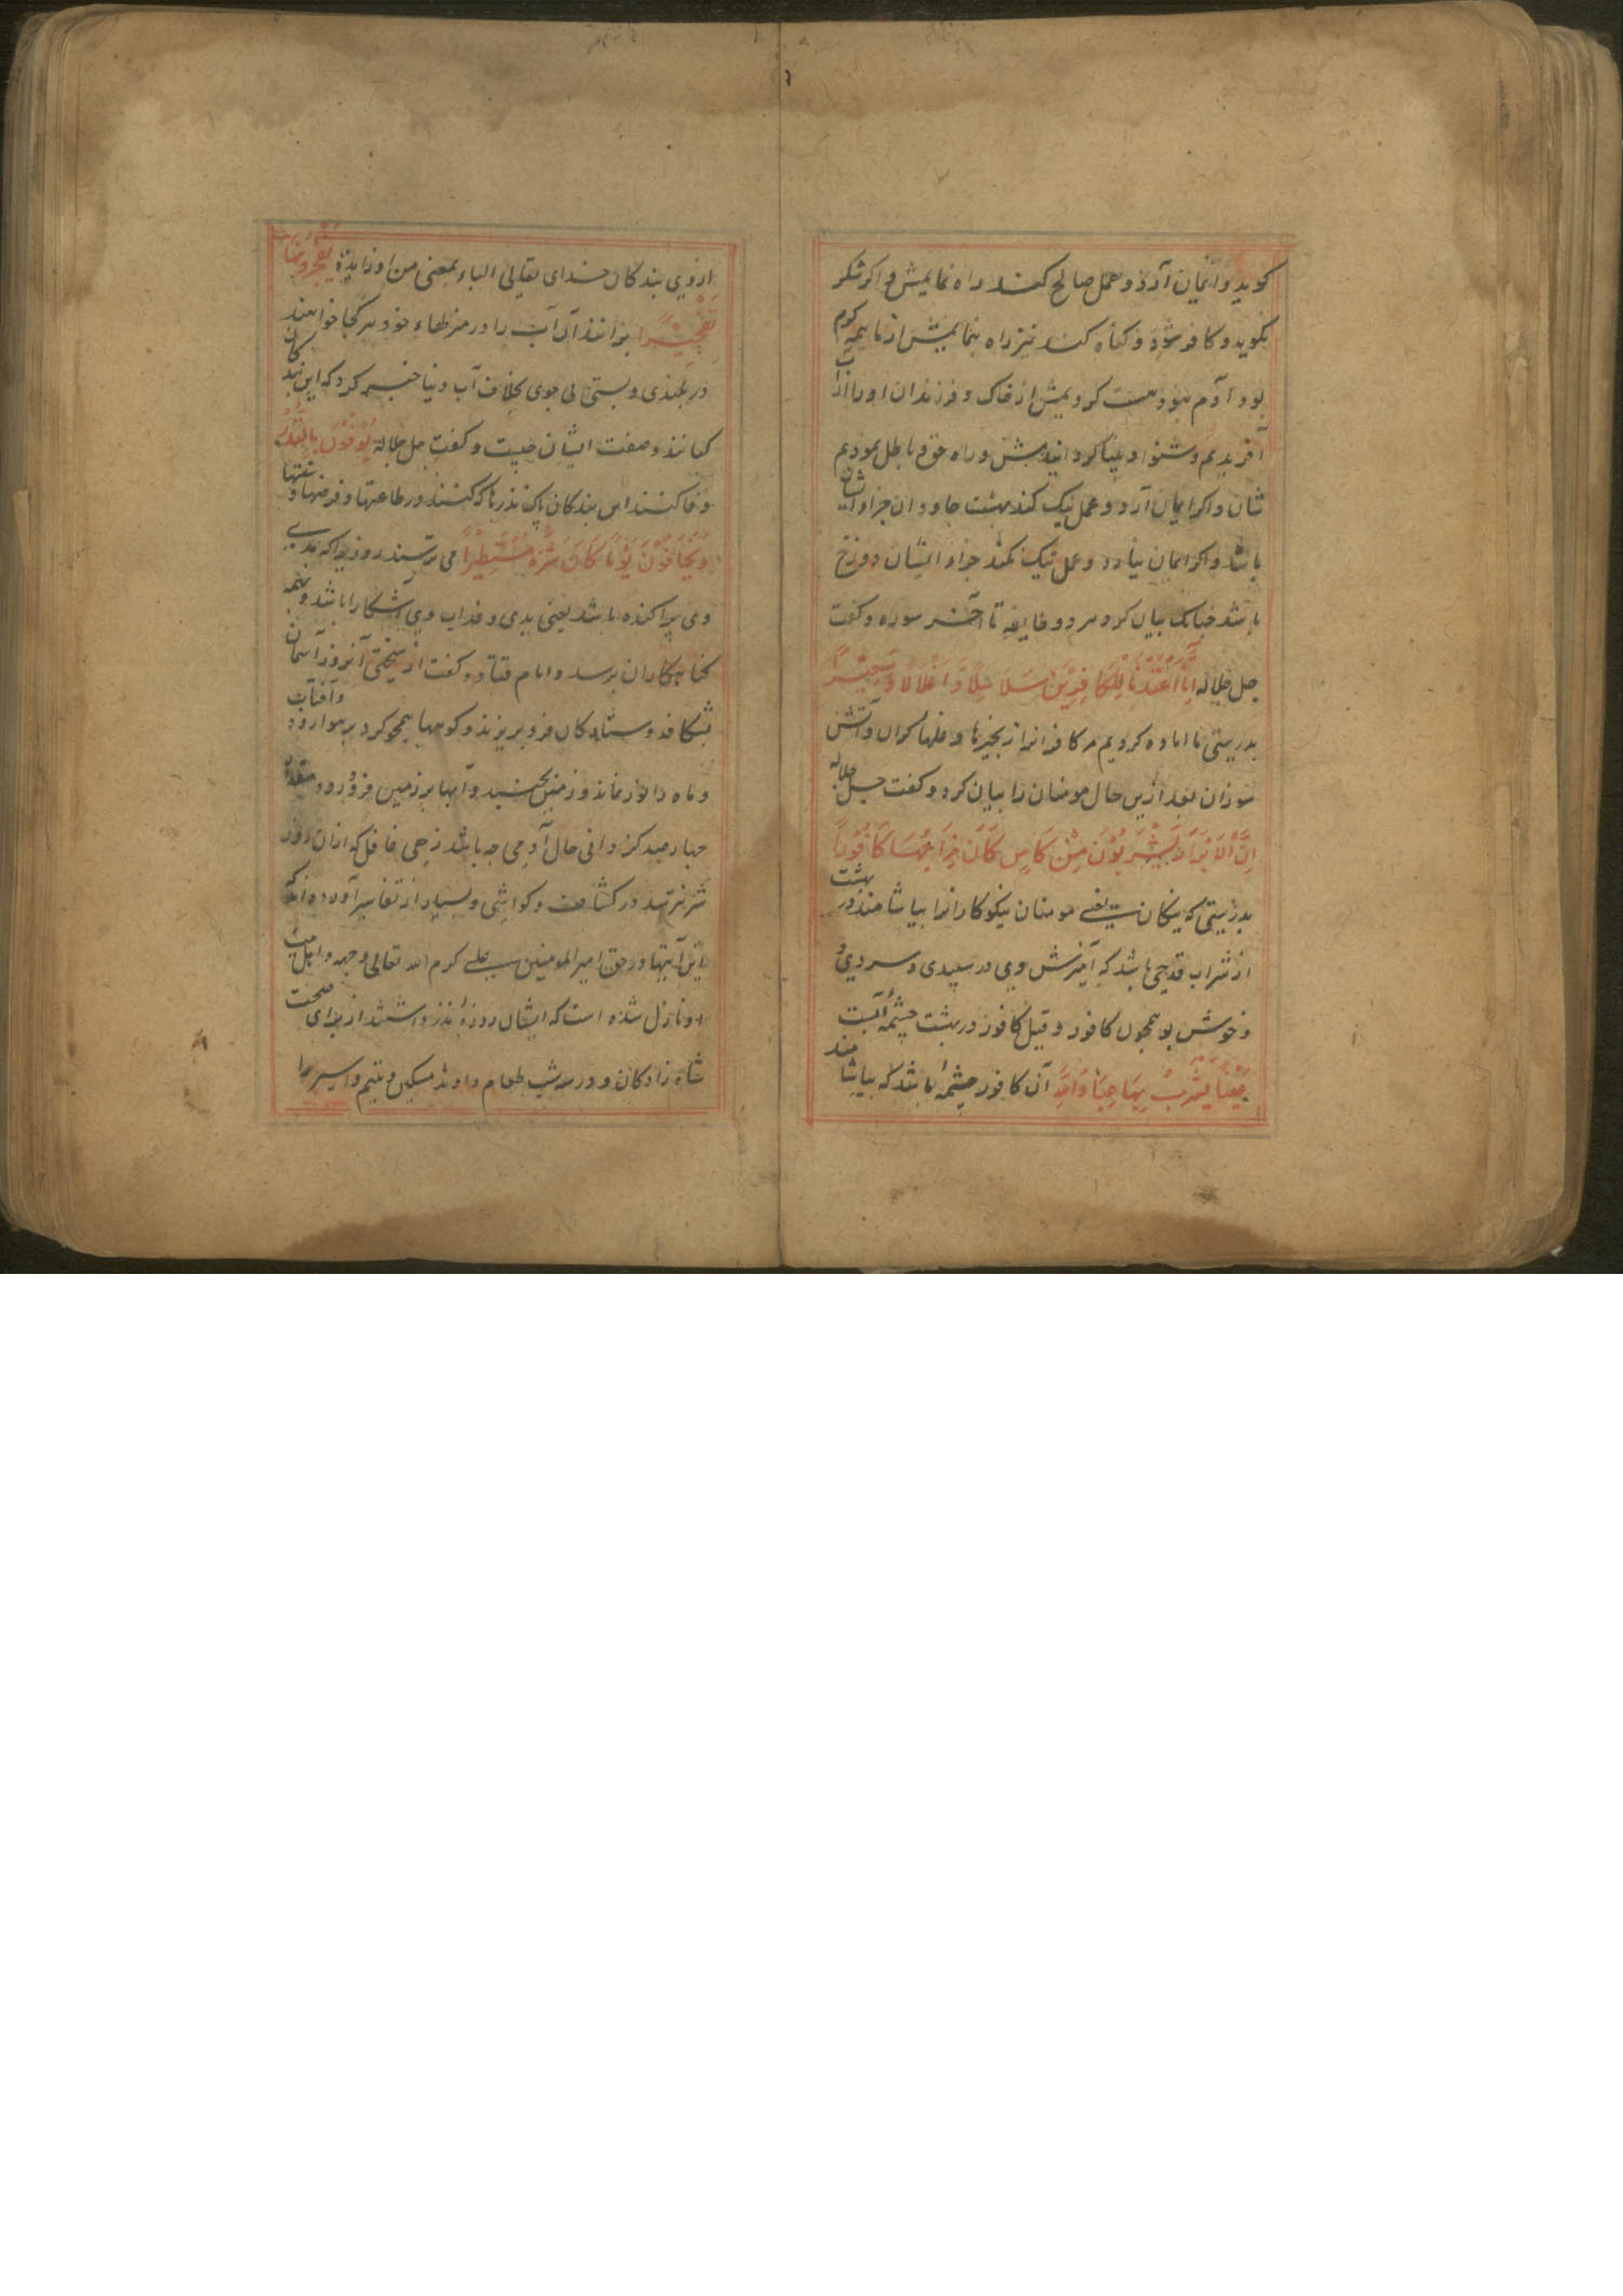 کوید و ایمان آرد و عمل صالح کند راه نمایمش و اکر شکر
نکوید و کافر شود و کناه کند نیز راه نمایمش از ما همه کرم
بود آدم نبود هست کردیمش از خاک و فرزندان او را از آب
آفریدیم و شنوا و بینا کردانیدمش و راه حق و باطل نمودیم
شان و اکر ایمان آرد و عمل نیک کند بهشت جاودان جزاء ایشان
باشد و اکر ایمان نیارد و عمل نیک نکند جزاء ایشان دوزخ
باشد چنانک بیان کرد هر دو طایفه تا آخر سوره و کفت
جل جلاله اِنَّا اَعْتَدْنَا لِلْكَافِرِيْنَ سَلَاسِلًا وَّ اَغْلَالًا وَسَعِيْرًا
بدرستی ما اماده کردیم مر کافرانرا زنجیرها و غلهاء کران و آتش
سوزان بعد ازین حال مومنان را بیان کرد و کفت جل جلاله
اِنَّ الْاَبْرَارَ يَشْرَبُوْنَ مِنْ كَاسٍ كَانَ مِزَاجُهَا كَافُوْرًا
بدرستی که نیکان یعنی مومنان نیکوکارانرا بیاشامند در بهشت
از شراب قدحی باشد که آمیزش وی در سپیدی و سردی و
و خوش بو همچون کافور و قیل کافور در بهشت چشمۀ آبست
عَيْنًا يَشْرَبُ بِهَا عِبَادُ اللهِ آن کافور چشمۀ باشد که بیاشامند
از وی بندکان خدای تعالی الباء بمعنی من او زایدة يُفَجِّرُوْنَهَا
تَفْجِيْرًا برانند آن آب را در منزلهاء خود هر کجا خواهند
در بلندی و پستی بی جوی بخلاف آب دنیا خبر کرد که این بندکان
کیانند و صفت ایشان چیست و کفت جل جلاله يُوْفُوْنَ بِالنَّذْرِ
وفا کنند این بندکان پاک نذرها که کنند در طاعتها و فرضها و سنتها
وَيَخَافُوْنَ يَوْمًا كَانَ شَرُّهُ مُسْتَطِيْرًا می ترسند روزیرا که بدی
وی پراکنده باشد یعنی بدی و عذاب وی آشکارا باشد و بهمه
کناهکاران برسد و امام قتاده کفت از سختی آنروز آسمان
بشکافد و ستارکان فرو بریزند و کوهها همچو کرد بر هوا رود و آفتاب
و ماه را نور نماند و زمین بجنبد و آبها بر زمین فرو رود
حال آدمی چه باشد زهی غافل که ازان روز
شر نترسد در کشاف و کواشی و بسیار از تفاسیر آورده اند که
این آیتها در حق امیر المومنین علی کرم الله تعالی وجهه و اهل بیت
او نازل شده است که ایشان روزۀ نذر داشتند از برای صحت
شاه زادکان و در سه شب طعام دادند مسکین و یتیم و اسیر را